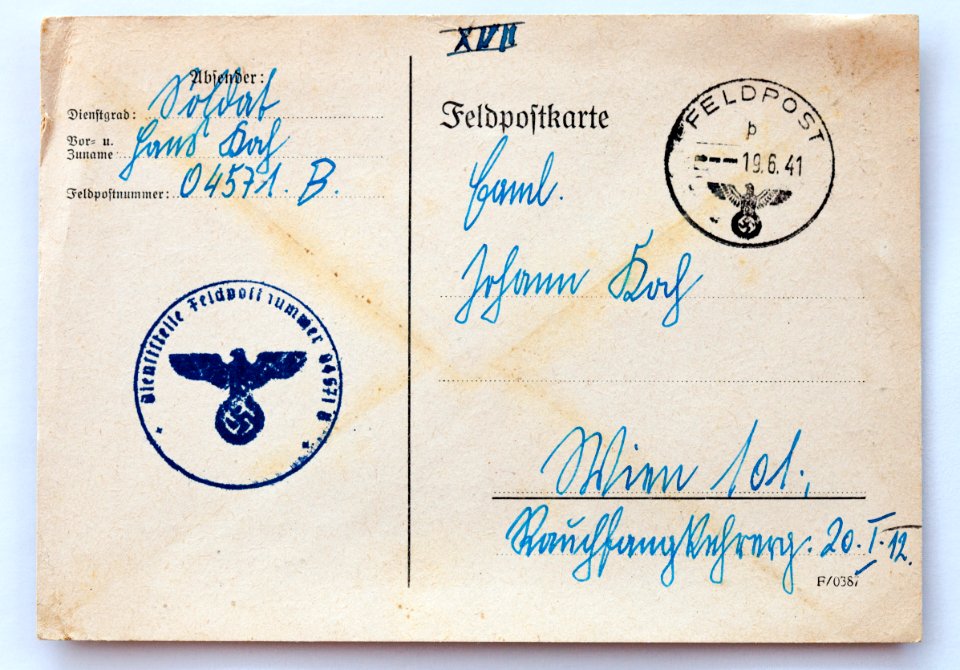 XVII
Absender:
Dienstgrad: Soldat
Vor- u.
Zuname Hans Koch
Feldpostnummer: 04571. B.
Dienststelle Feldpostnummer 04571 B
Feldpostkarte
FELDPOST
b
19.6.41
Faml.
Johann Koch
Wien 101;
Rauchfangkehrerg. 20. I. 12.
F/0387